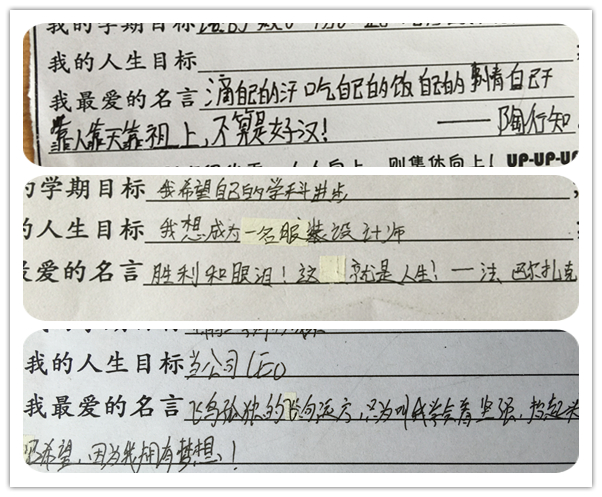 我的学期目标
我的人生目标
我最爱的名言 滴自己的汗 吃自己的饭 自己的事情自己干
靠人靠天靠祖上,不算是好汉! ——陶行知
则集体向上! UP-UP-U
的学期目标 我希望自己的学科进步
的人生目标 我想成为一名服装设计师
最爱的名言 胜利和眼泪!这就是人生!—法 巴尔扎克
我的人生目标 当公司CEO
我最爱的名言 飞鸟孤独的飞向远方,只为叫我学会着坚强,抬起头
希望,因为我拥有梦想!